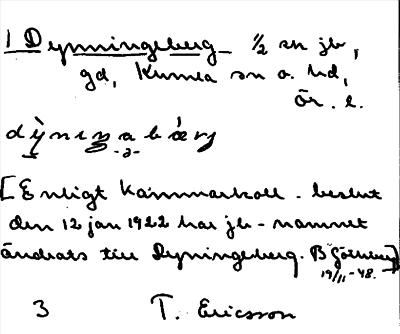 1 Dyningeberg 1/2 sn jb,
gd, Kumla sn o. hd,
Ör. l.
[Enligt Kammarkoll. beslut
den 12 jan 1922 har jb-namnet
ändrats till Dyningeberg.
19/11-48.
3 T. Ericsson